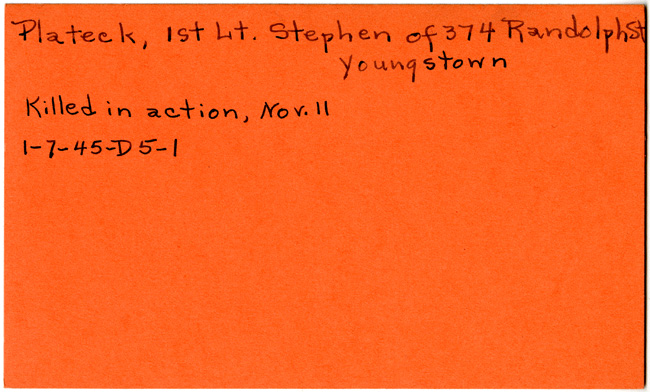 Plateck, 1st Lt. Stephen of 374 Randolph St
Youngstown
Killed in action, Nov. 11
1-7-45-D 5-1